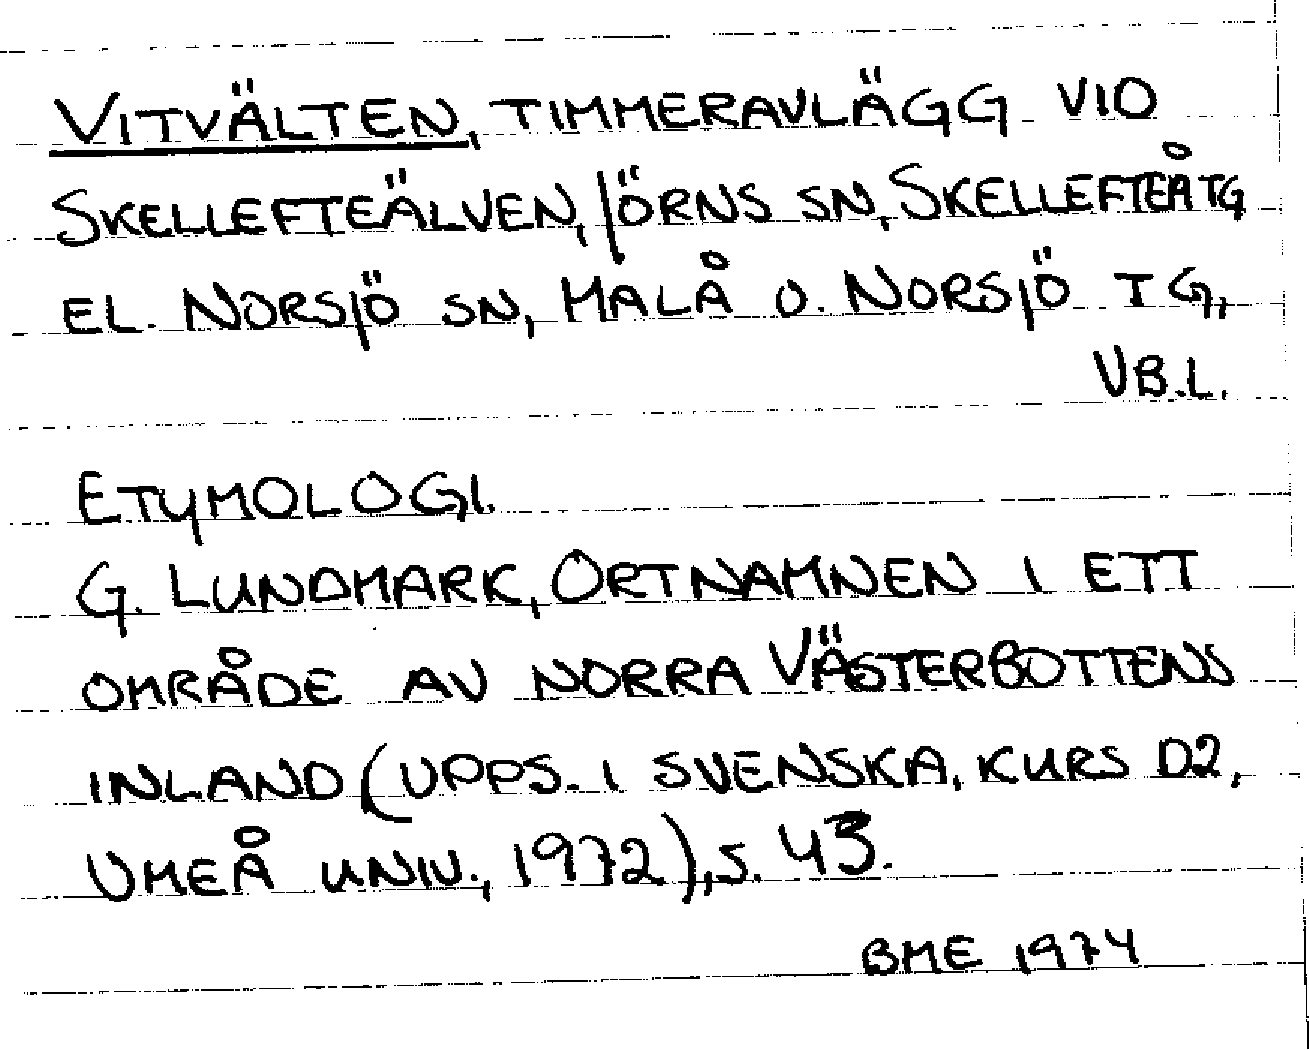 VITVÄLTEN, TIMMERAVLÄGG VID
SKELLEFTEÄLVEN, JÖRNS SN, SKELLEFTEÅ TG
EL. NORSJÖ SN, MALÅ O. NORSJÖ TG,
VB.L.
ETYMOLOGI.
G. LUNDMARK, ORTNAMNEN I ETT
OMRÅDE AV NORRA VÄSTERBOTTENS
INLAND (UPPS. I SVENSKA, KURS D2,
UMEÅ UNIV., 1972), S. 43.
BME 1974